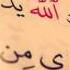 اللَّهُ يَد
ي مِن